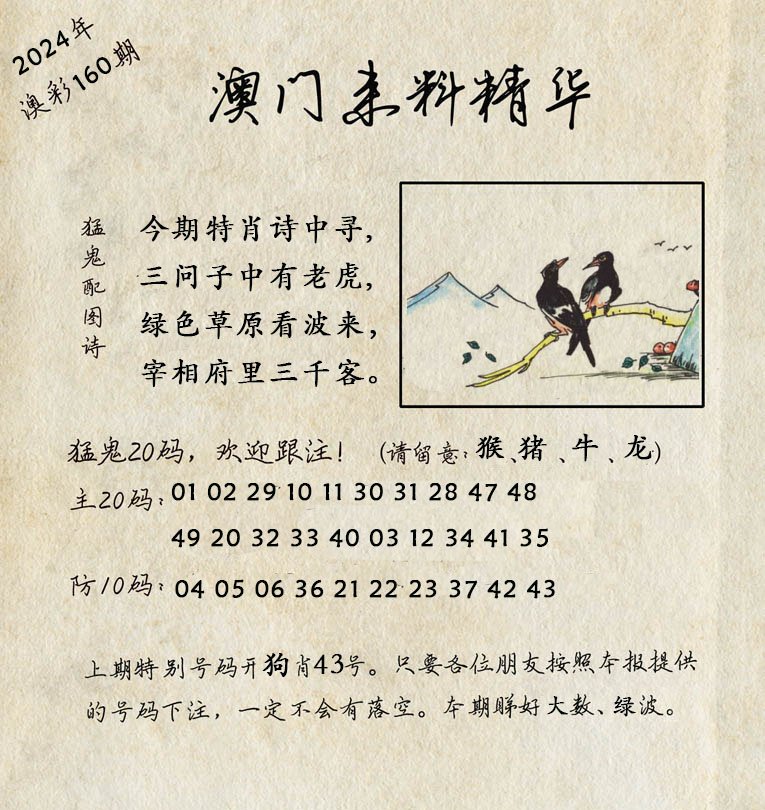 2024年
澳彩160期
澳门来料精华
猛鬼配图诗
今期特肖诗中寻，
三问子中有老虎，
绿色草原看波来，
宰相府里三千客。
猛鬼20码，欢迎跟注！（请留意：猴、猪、牛、龙）
主20码：01 02 29 10 11 30 31 28 47 48
49 20 32 33 40 03 12 34 41 35
防10码：04 05 06 36 21 22 23 37 42 43
上期特别号码开狗肖43号。只要各位朋友按照本报提供
的号码下注，一定不会有落空。本期睇好大数、绿波。